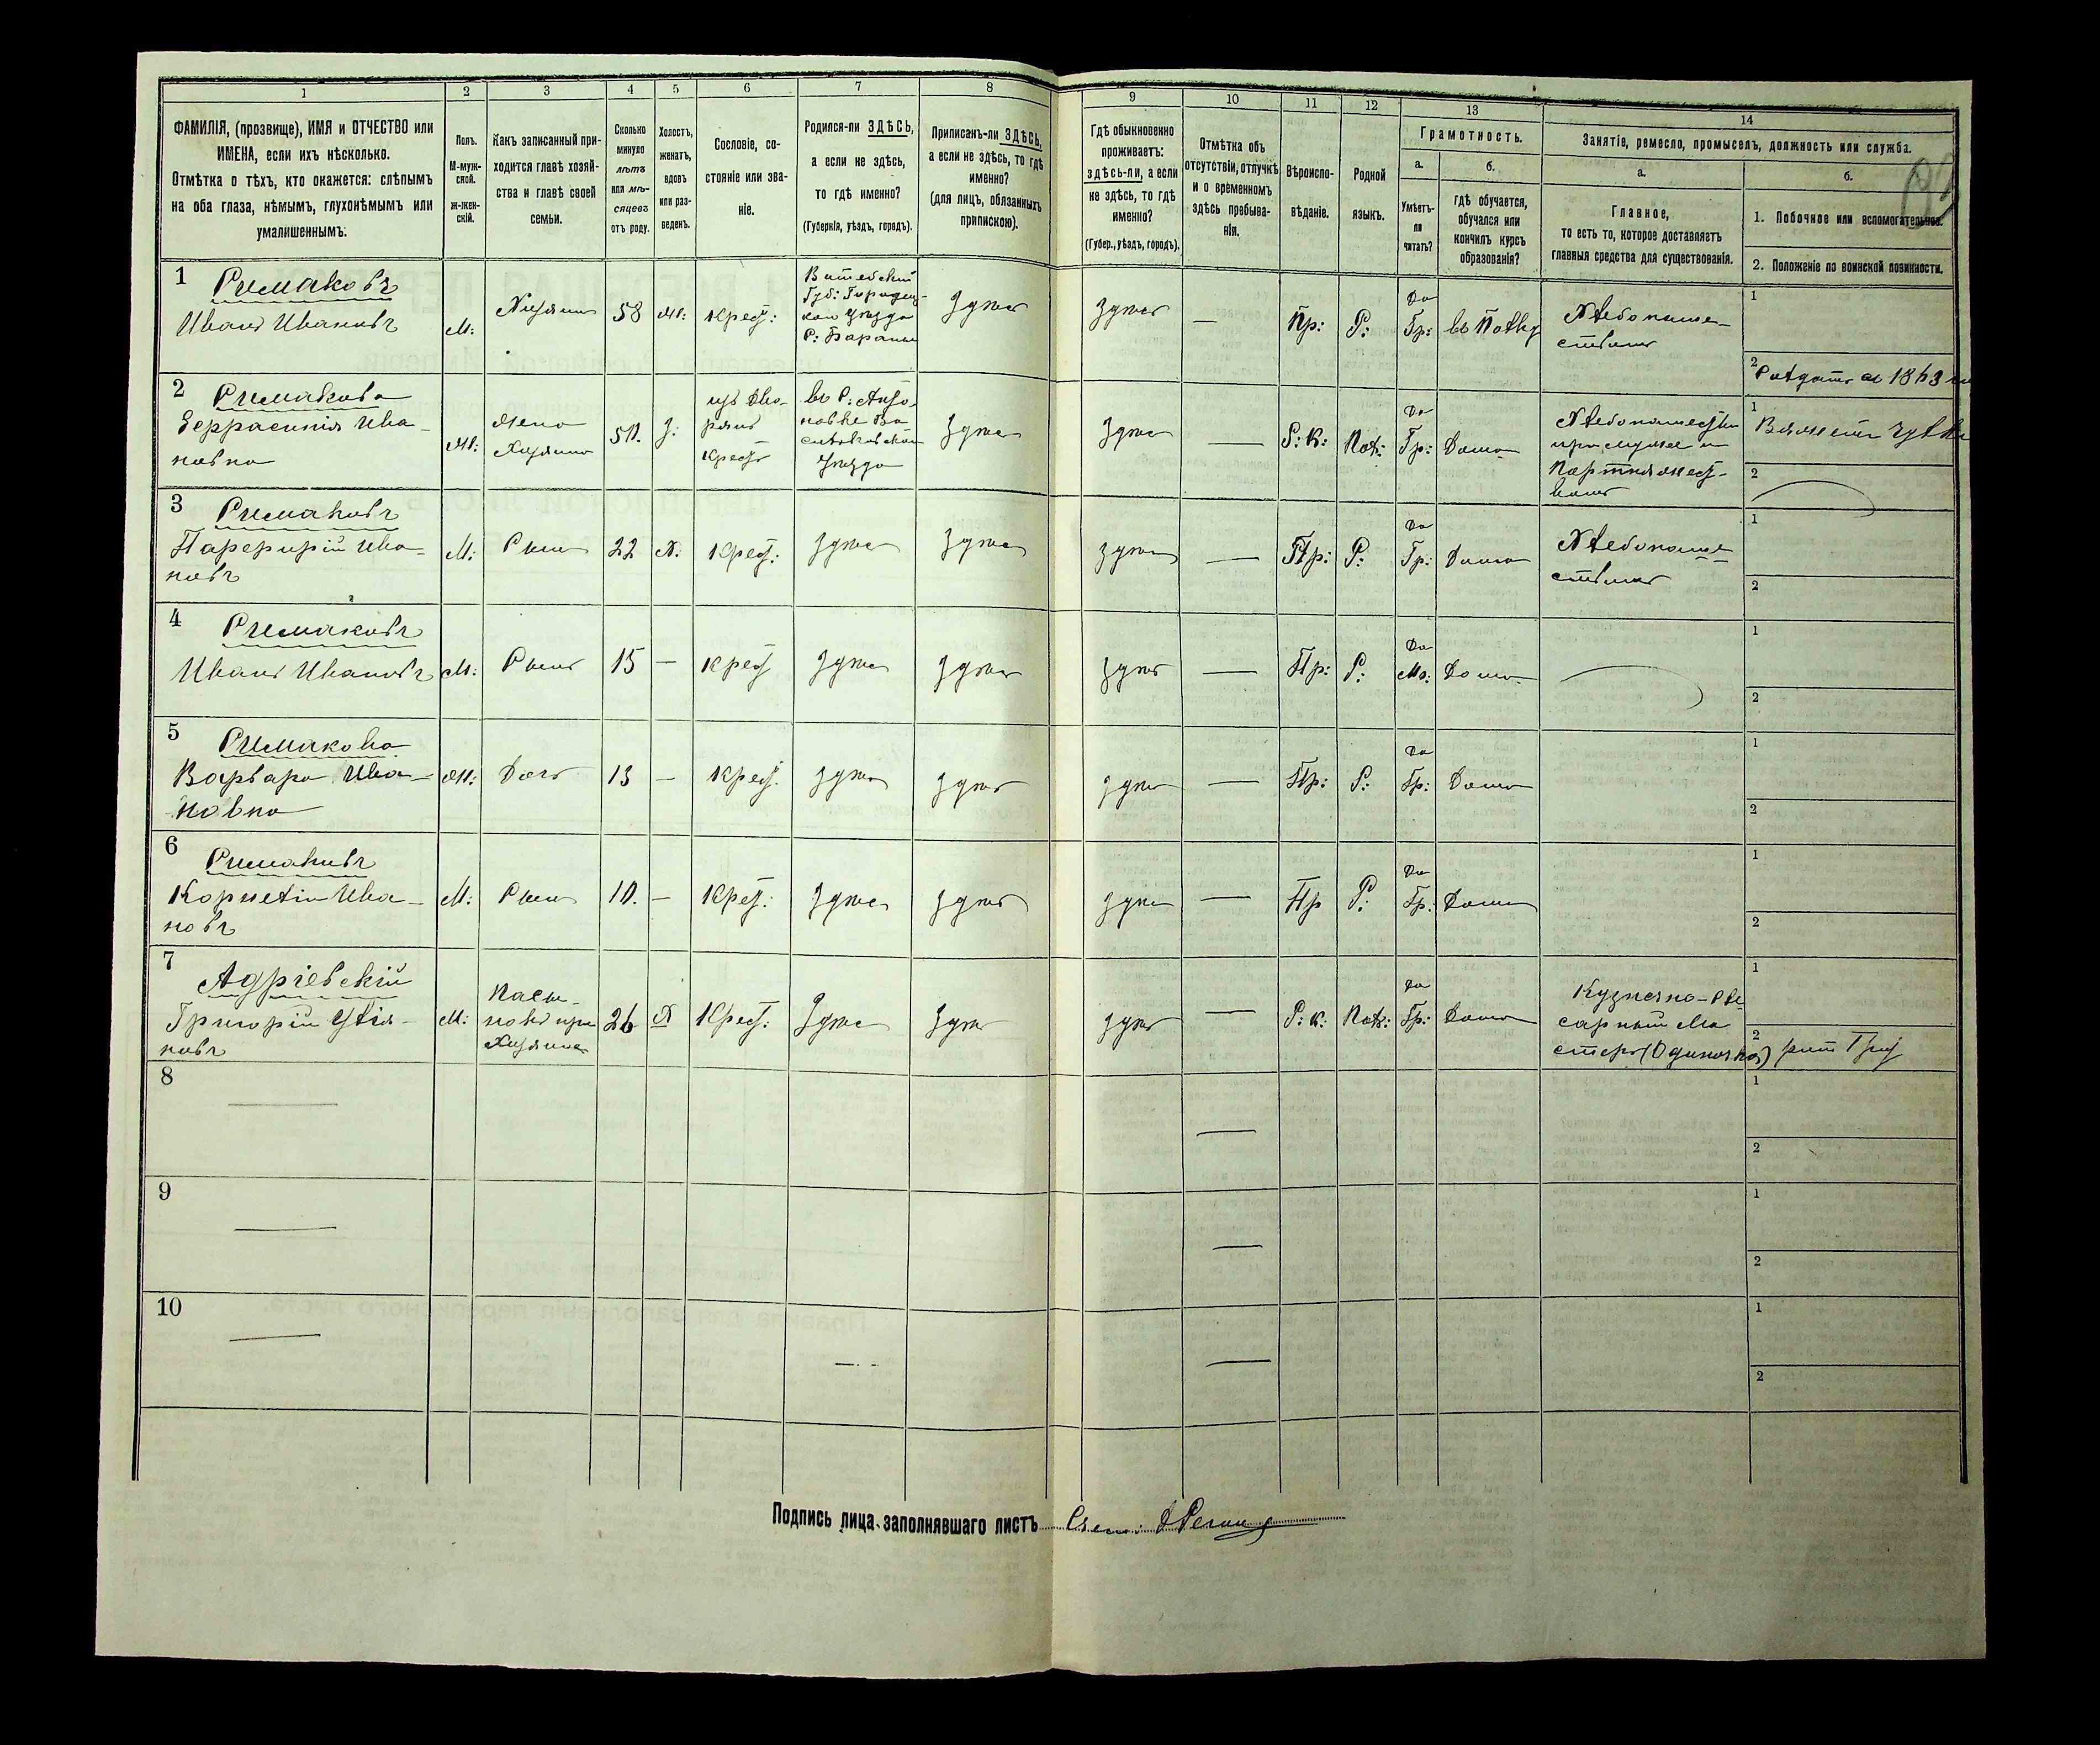 1 2 3 4 5 6 7 8
ФАМИЛІЯ, (прозвище), ИМЯ и ОТЧЕСТВО или
ИМЕНА, если ихъ нѣсколько.
Отмѣтка о тѣхъ, кто окажется: слѣпымъ
на оба глаза, нѣмымъ, глухонѣмымъ или
умалишеннымъ.
Полъ.
М-муж-
ской.
ж-жен-
скій.
Какъ записанный при-
ходится главѣ хозяй-
ства и главѣ своей
семьи.
Сколько
минуло
лѣтъ
или мѣ-
сяцевъ
отъ роду.
Холостъ,
женатъ,
вдовъ
или раз-
веденъ.
Сословіе, со-
стояніе или зва-
ніе.
Родился-ли ЗДѢСЬ,
а если не здѣсь,
то гдѣ именно?
(Губернія, уѣздъ, городъ).
Приписанъ-ли ЗДѢСЬ,
а если не здѣсь, то гдѣ
именно?
(для лицъ, обязанныхъ
припискою).
9 10 11 12 13 14
Гдѣ обыкновенно
проживаетъ:
здѣсь-ли, а если
не здѣсь, то гдѣ
именно?
(Губер., уѣздъ, городъ).
Отмѣтка объ
отсутствіи, отлучкѣ
и о временномъ
здѣсь пребыва-
ніи.
Вѣроиспо-
вѣданіе.
Родной
языкъ.
Грамотность.
а.
Умѣетъ-
ли
читать?
б.
гдѣ обучается,
обучался или
кончилъ курсъ
образованія?
Занятіе, ремесло, промыселъ, должность или служба.
а.
Главное,
то есть то, которое доставляетъ
главныя средства для существованія.
б.
1. Побочное или вспомогательное.
2. Положеніе по воинской повинности.
1
Римаковъ
Иванъ Ивановъ
М:
Хозяинъ
58
Ж:
Крест:
Витебской
Губ: Городец-
кой Уѣзда
здѣсь
здѣсь
Пр:
Р:
Да
Гр:
въ Полку
Хлебопаше-
ствомъ
1
2
Солдатъ съ 1863
2
Римакова
Ивановна
Ж:
Жена
Хозяина
50.
З:
изъ Дво-
рянъ
Крест
Уѣзда
здѣсь
здѣсь
Р: К:
Пол:
Да
Гр:
Дома
Хлебопашест
при мужѣ и
1
2
3
Римаковъ
Ива-
новъ
М:
Сынъ
22
Х:
Крест:
здѣсь
здѣсь
здѣсь
Пр:
Р:
Да
Гр:
Дома
Хлебопаше
ствомъ
1
2
4
Римаковъ
Иванъ Ивановъ
М:
Сынъ
15
Крест
здѣсь
здѣсь
здѣсь
Пр:
Р:
Да
Дома
1
2
5
Римакова
Варвара Ива-
новна
Ж:
Дочь
13
Крест:
здѣсь
здѣсь
здѣсь
Пр:
Р:
Да
Гр:
Дома
1
2
6
Римаковъ
Корнелій Ива-
новъ
М:
Сынъ
10.
Крест:
здѣсь
здѣсь
здѣсь
Пр
Р:
Да
Гр:
Дома
1
2
7
Григорій
новъ
М:
Пасы-
нокъ при
Хозяинѣ
26
Х
Крест:
Здѣсь
Здѣсь
здѣсь
Р: К:
Пол:
Да
Гр:
Дома
Кузнечно-Сле
сарный Ма
стеръ (Одиночка)
1
2
8
1
2
9
1
2
10
1
2
Подпись лица, заполнявшаго листъ